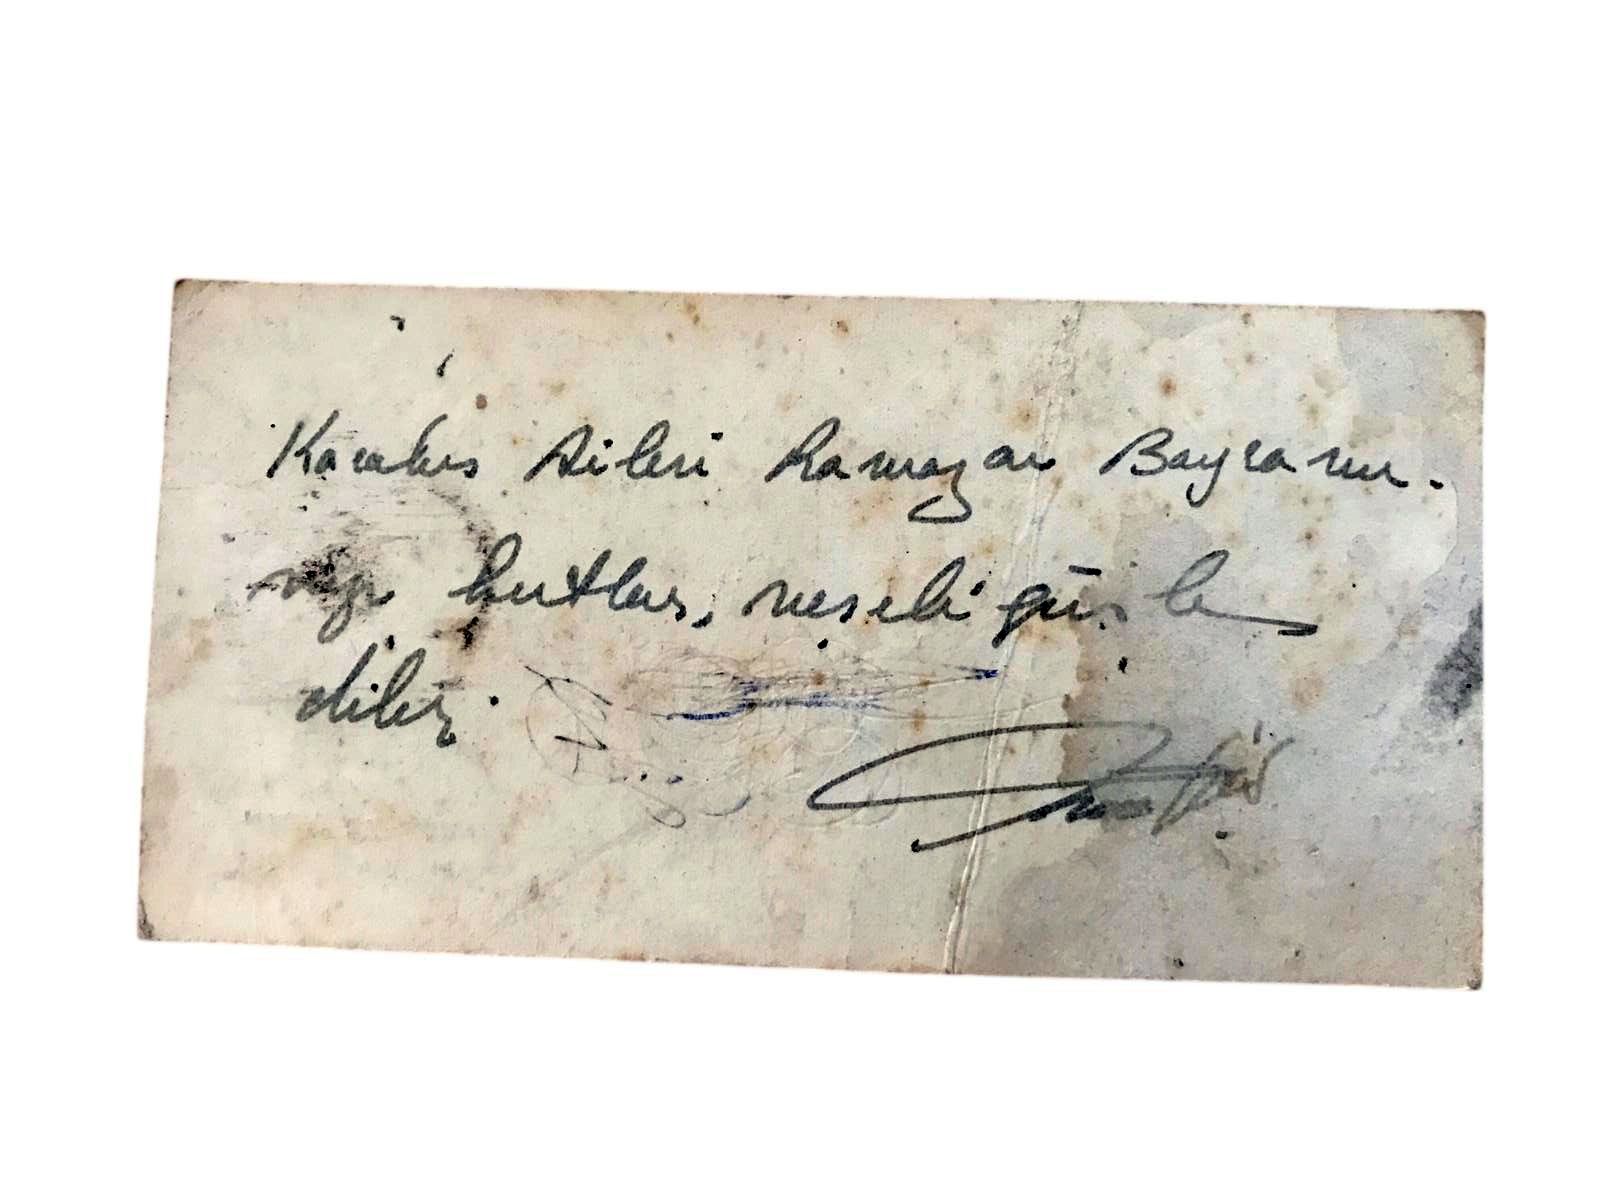 Karakuş Ailesi Ramazan Bayramı-
nızı kutlar, neşeli günler
dileriz.